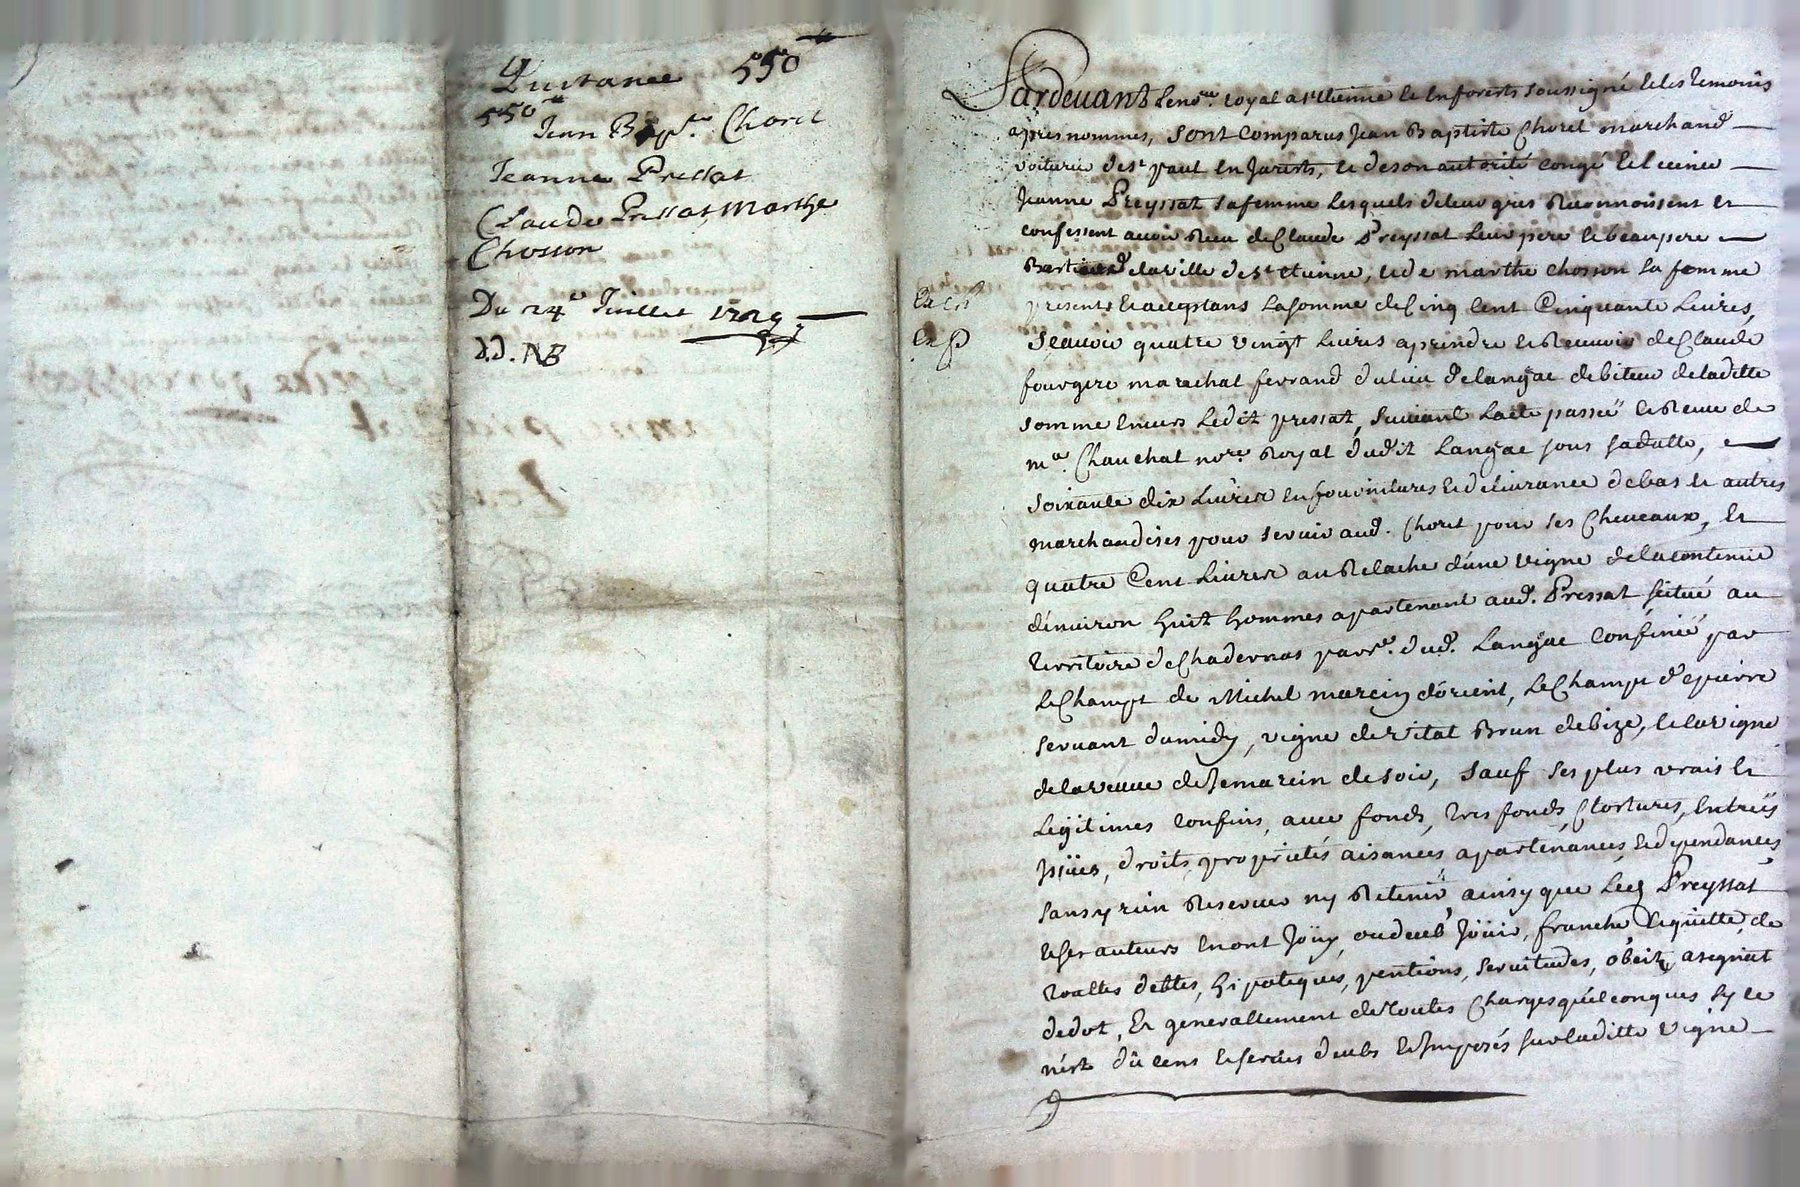 Quitance 550
550
Jean Bapte. Choret
Jeanne Pressat
Claude Pressat, Marthe
Chosson
Du 24e Juillet 1729
d.d. NB
Pardevant le nore. royal a st etienne le en forests soussigné et les temoins
apres nommes, sont comparus Jean Baptiste Choret marchand
voiturier de st paul en Jarests, et de son autorité congé et licince
Jeanne Preyssat sa femme lesquels de leur gres Reconnoissent et
confessent avoir Reçu de Claude Preyssat leur pere et beau pere
de la ville de st etienne, et de marthe chosson sa femme
Exp
presents et aceptans la somme de Cinq Cent Cinquante Livres,
Scauoir quatre vingt livres a prendre et Receuoir de Claude
fourgere marechal ferrand du lieu de langeac debiteur de laditte
somme envers ledit pressat, suivant l'acte passée et Receue de
me. Chauchat nore. Royal dudit Langeac sous sa datte,
soixante dix livres en fournitures et deliurance de bas et autres
marchandises pour seruir aud. Choret pour ses cheueaux, et
quatre Cent Livres au Relache d'une vigne de la contenue
d'enuiron huit hommes apartenant aud. Pressat scitué au
territoire de Chadernas parre. dud. Langeac confinée par
le Champt de Michel marcin d'orient, le Champt de pierre
seruant du midy, vigne de vital Brun de bize, et la vigne
de la veuue de marcin de soir, sauf ses plus vrais et
legitimes confins, auec fonds, tres fonds, Clostures, entrées
issües, droits, proprietés aisances apartenances et dependances
sans y rien Reseruer ny Retenir, ainsy que led. Preyssat
et ses auteurs en ont joüy, ou deub joüir, franche et quitte, de
toutes debtes, hipoteques, pentions, seruitudes, obeit, asegnat
de dot, et generallement de toutes Charges quelconques sy ce
n'est du cens et seruis deubs et imposés sur laditte vigne